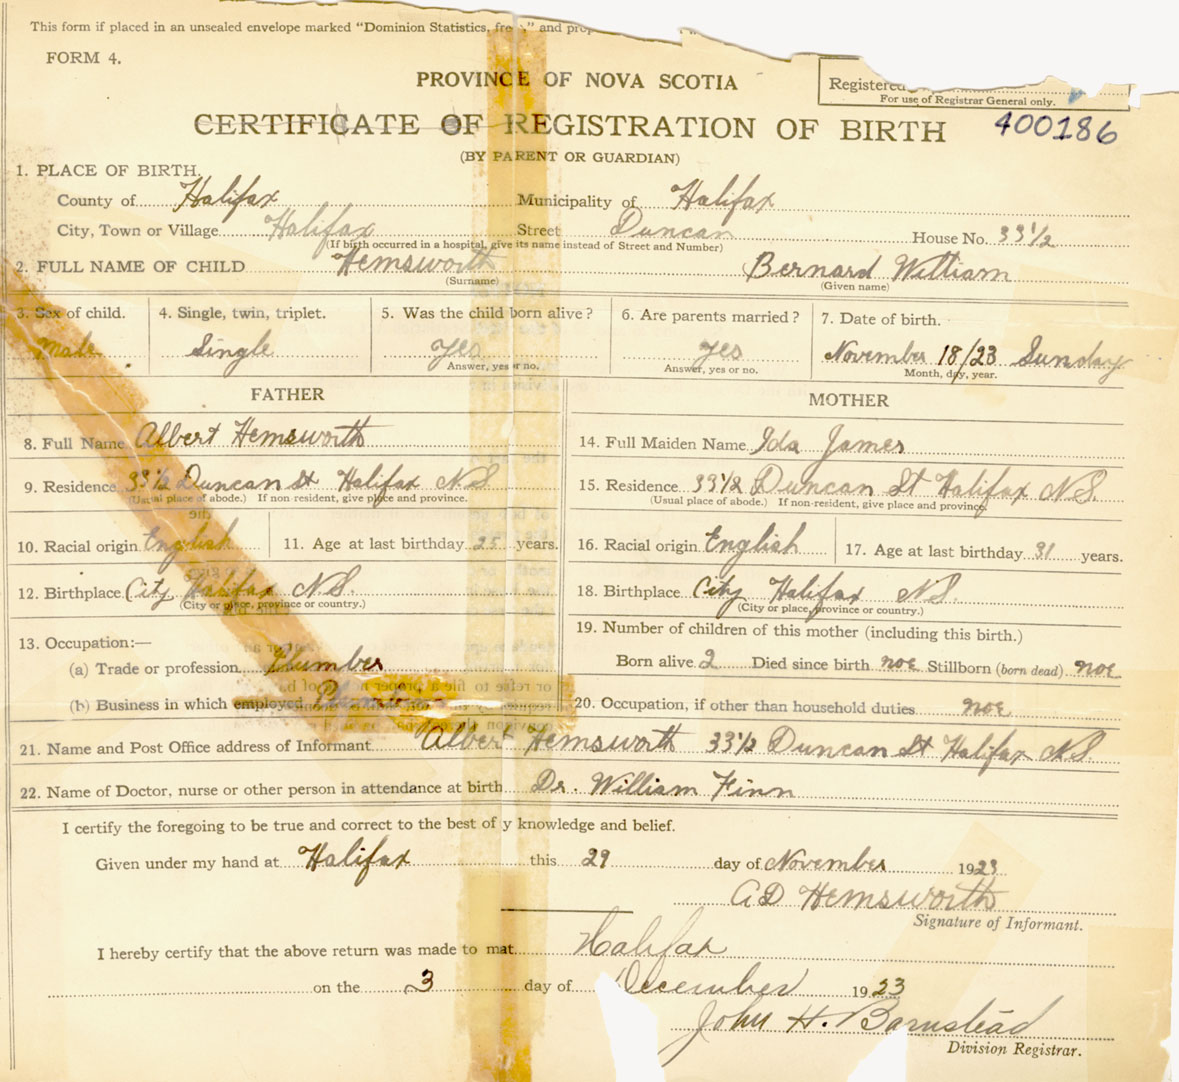 This form if placed in an unsealed envelope marked "Dominion Statistics, free" and
FORM 4.
PROVINCE OF NOVA SCOTIA
Registered
For use of Registrar General only.
CERTIFICATE OF REGISTRATION OF BIRTH 400186
(BY PARENT OR GUARDIAN)
1. PLACE OF BIRTH.
County of Halifax Municipality of Halifax
City, Town or Village Halifax Street Duncan House No. 33 1/2
(If birth occurred in a hospital, give its name instead of Street and Number)
2. FULL NAME OF CHILD Hemsworth Bernard William
(Surname) (Given name)
3. Sex of child. 4. Single, twin, triplet. 5. Was the child born alive? 6. Are parents married? 7. Date of birth.
Male Single Yes Yes November 18/23 Sunday
Answer, yes or no. Answer, yes or no. Month, day, year.
FATHER MOTHER
8. Full Name Albert Hemsworth 14. Full Maiden Name Ida James
9. Residence 33 1/2 Duncan St Halifax N.S. 15. Residence 33 1/2 Duncan St Halifax N.S.
(Usual place of abode.) If non-resident, give place and province. (Usual place of abode.) If non-resident, give place and province.
10. Racial origin English 11. Age at last birthday 25 years. 16. Racial origin English 17. Age at last birthday 31 years.
12. Birthplace City Halifax N.S. 18. Birthplace City Halifax N.S.
(City or place, province or country.) (City or place, province or country.)
13. Occupation:— 19. Number of children of this mother (including this birth.)
(a) Trade or profession Plumber Born alive 2 Died since birth noe Stillborn (born dead) noe
(b) Business in which employed 20. Occupation, if other than household duties noe
21. Name and Post Office address of Informant Albert Hemsworth 33 1/2 Duncan St Halifax N.S.
22. Name of Doctor, nurse or other person in attendance at birth Dr. William Finn
I certify the foregoing to be true and correct to the best of y knowledge and belief.
Given under my hand at Halifax this 29 day of November 1923
A D Hemsworth
Signature of Informant.
I hereby certify that the above return was made to mat Halifax
on the 3 day of December 1923
John H. Barnstead
Division Registrar.